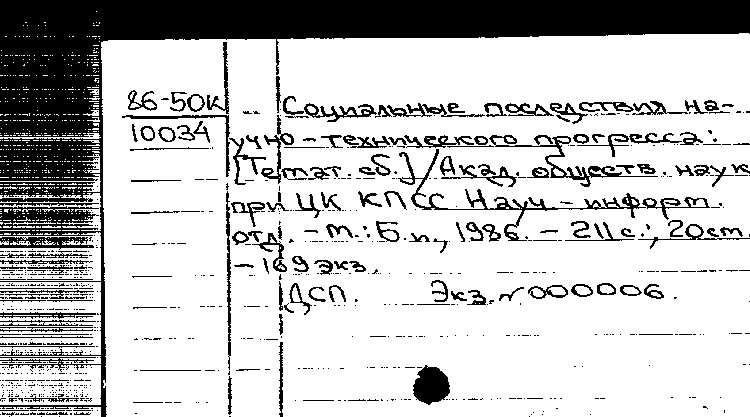 86-50К
10034
Социальные последствия на-
учно-технического прогресса:
[Темат. сб.] / Акад. обществ. наук
при ЦК КПСС Науч-информ.
отд. - М.: Б.и., 1986. - 211 с.; 20 см.
- 169 экз.
ДСП. Экз. № 000006.